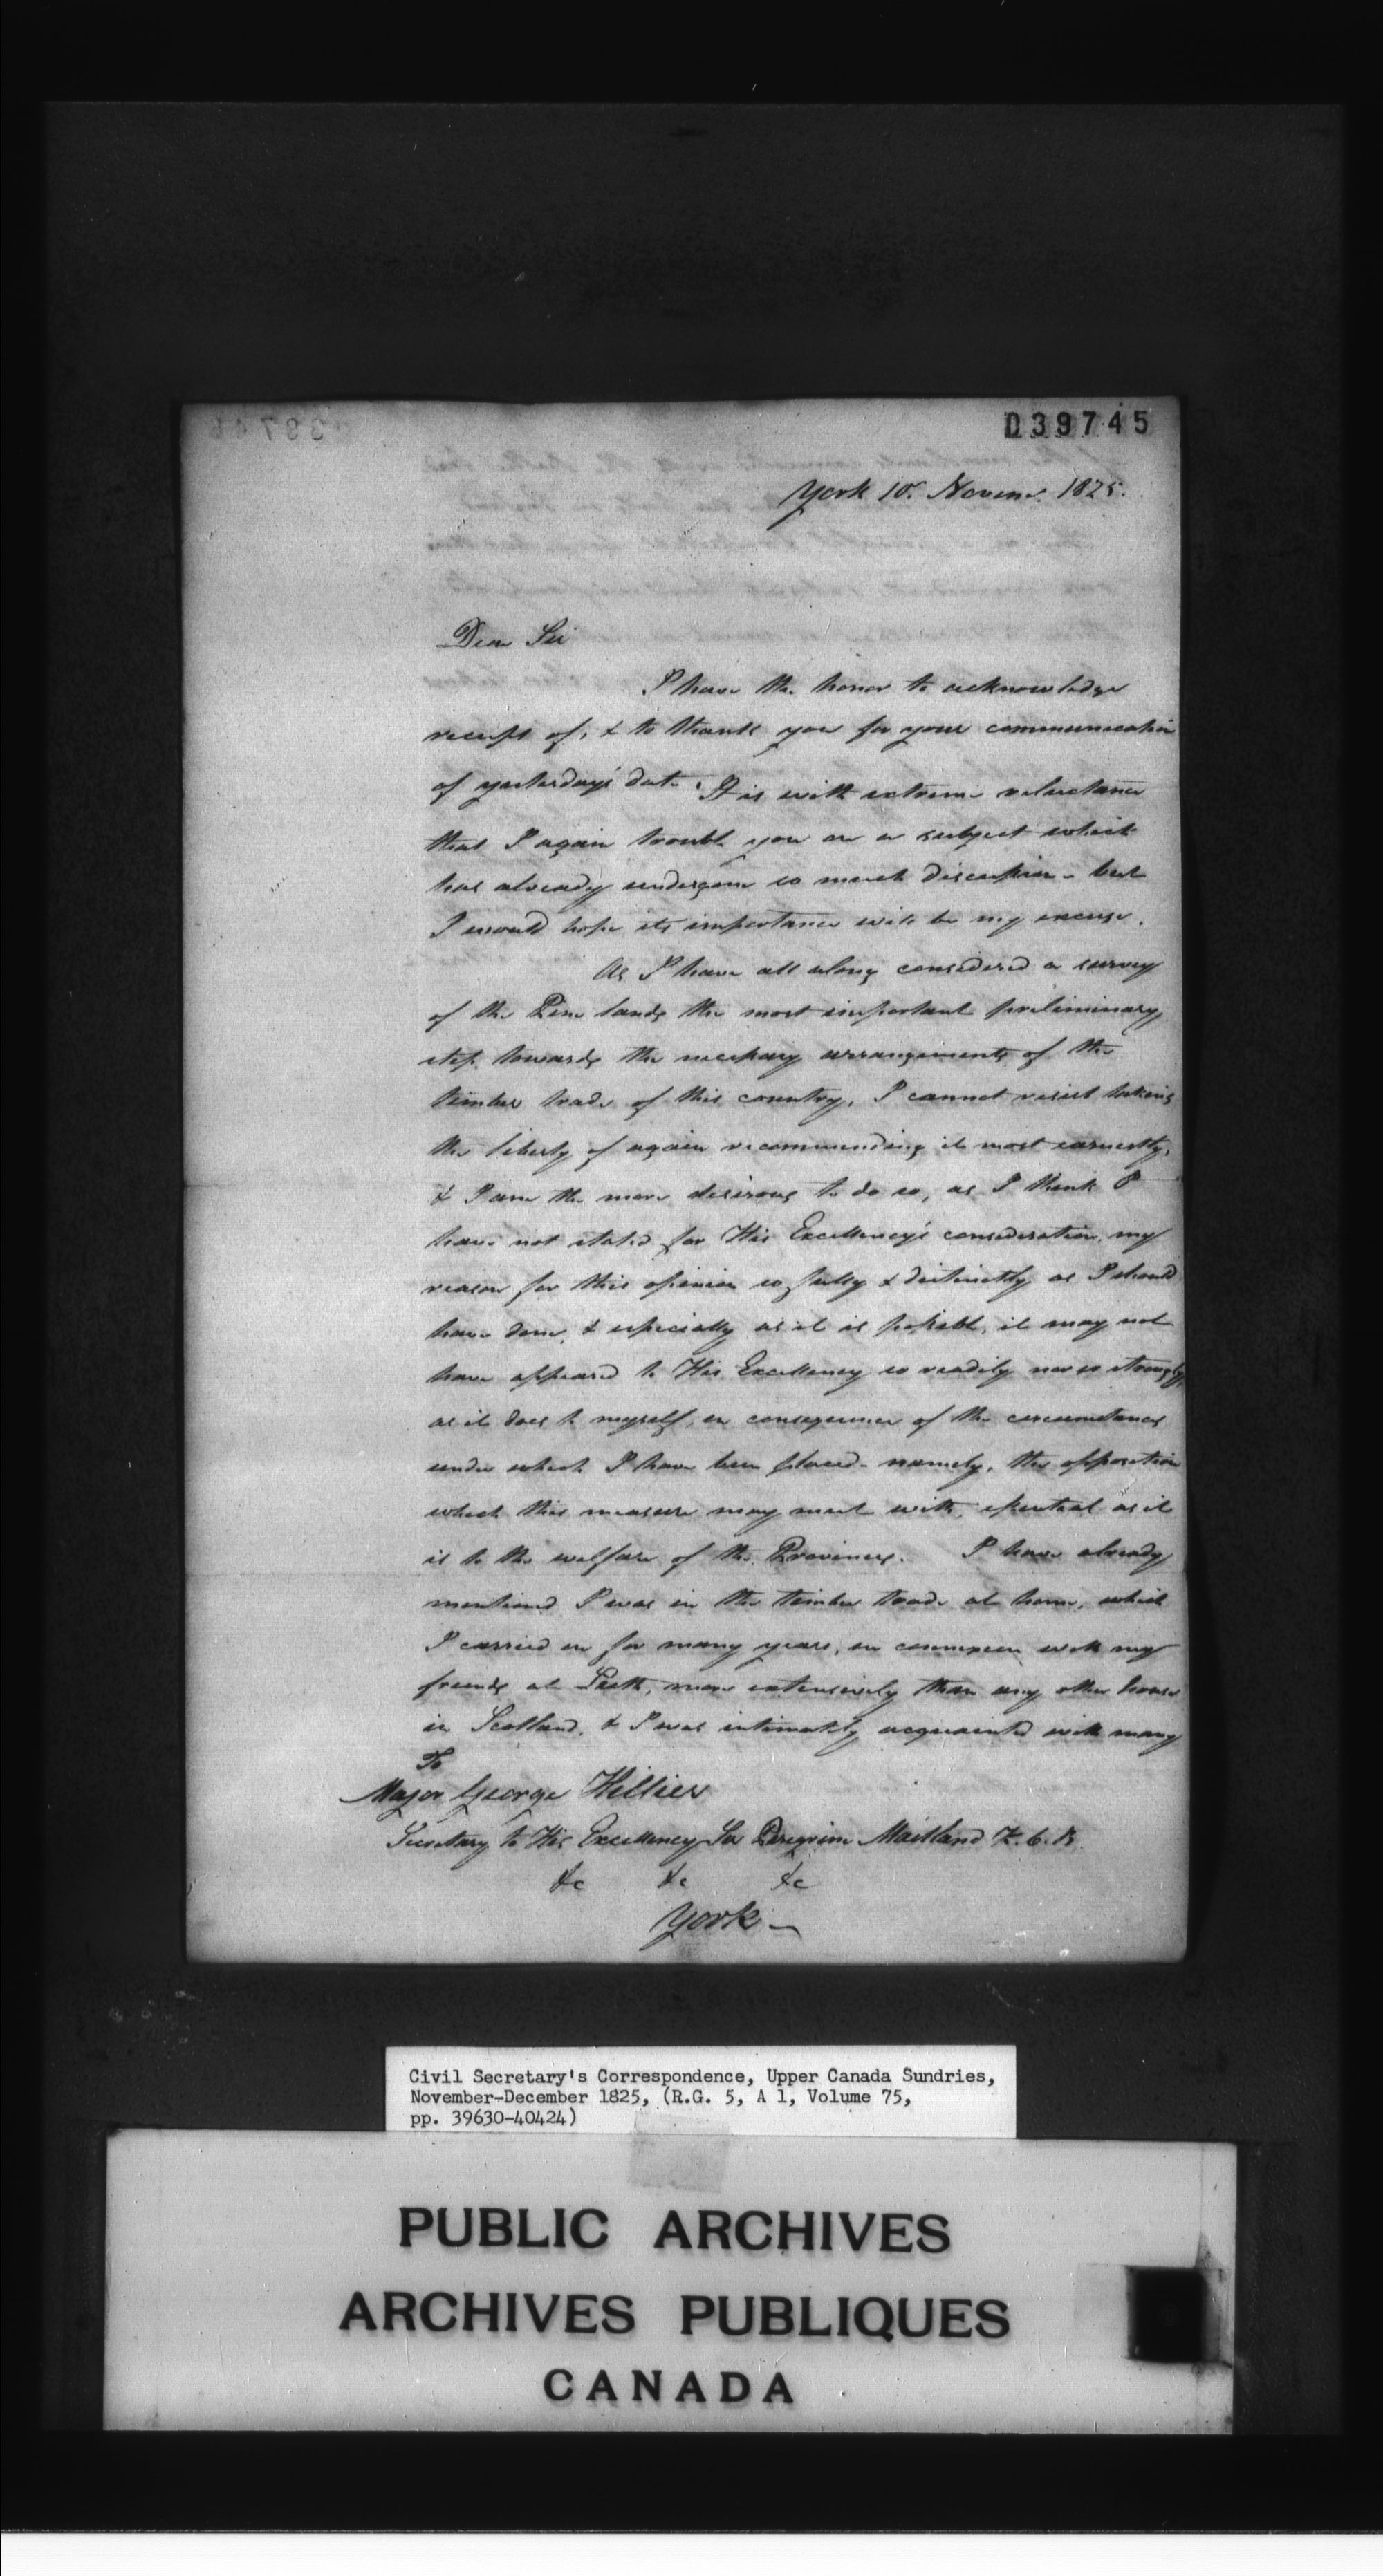 D39745
York 10. Novemr. 1825.
Dear Sir
I have the honor to acknowledge
receipt of, & to thank you for your communication
of yesterday's date. It is with extreme reluctance
that I again trouble you on a subject which
has already undergone so much discussion - but
I would hope its importance will be my excuse.
As I have all along considered a survey
of the Pine lands the most important preliminary
step towards the necessary arrangements of the
timber trade of this country, I cannot resist taking
the liberty of again recommending it most earnestly,
& I am the more desirous to do so, as I think I
have not stated for His Excellency's consideration, my
reason for this opinion so fully & distinctly as I should
have done, & especially as it is possible, it may not
have appeared to His Excellency so readily nor so strongly,
as it does to myself, in consequence of the circumstances
under which I have been placed - namely, the opposition
which this measure may meet with, essential as it
is to the welfare of the Provinces. I have already
mentioned I was in the timber trade at home, which
I carried on for many years, in connexion with my
friends at Leith, more extensively than any other house
in Scotland, & I was intimately acquainted with many
To
Major George Hillier
Secretary to His Excellency Sir Peregrine Maitland K.C.B.
&c &c &c
York -
Civil Secretary's Correspondence, Upper Canada Sundries,
November-December 1825, (R.G. 5, A 1, Volume 75,
pp. 39630-40424)
PUBLIC ARCHIVES
ARCHIVES PUBLIQUES
CANADA